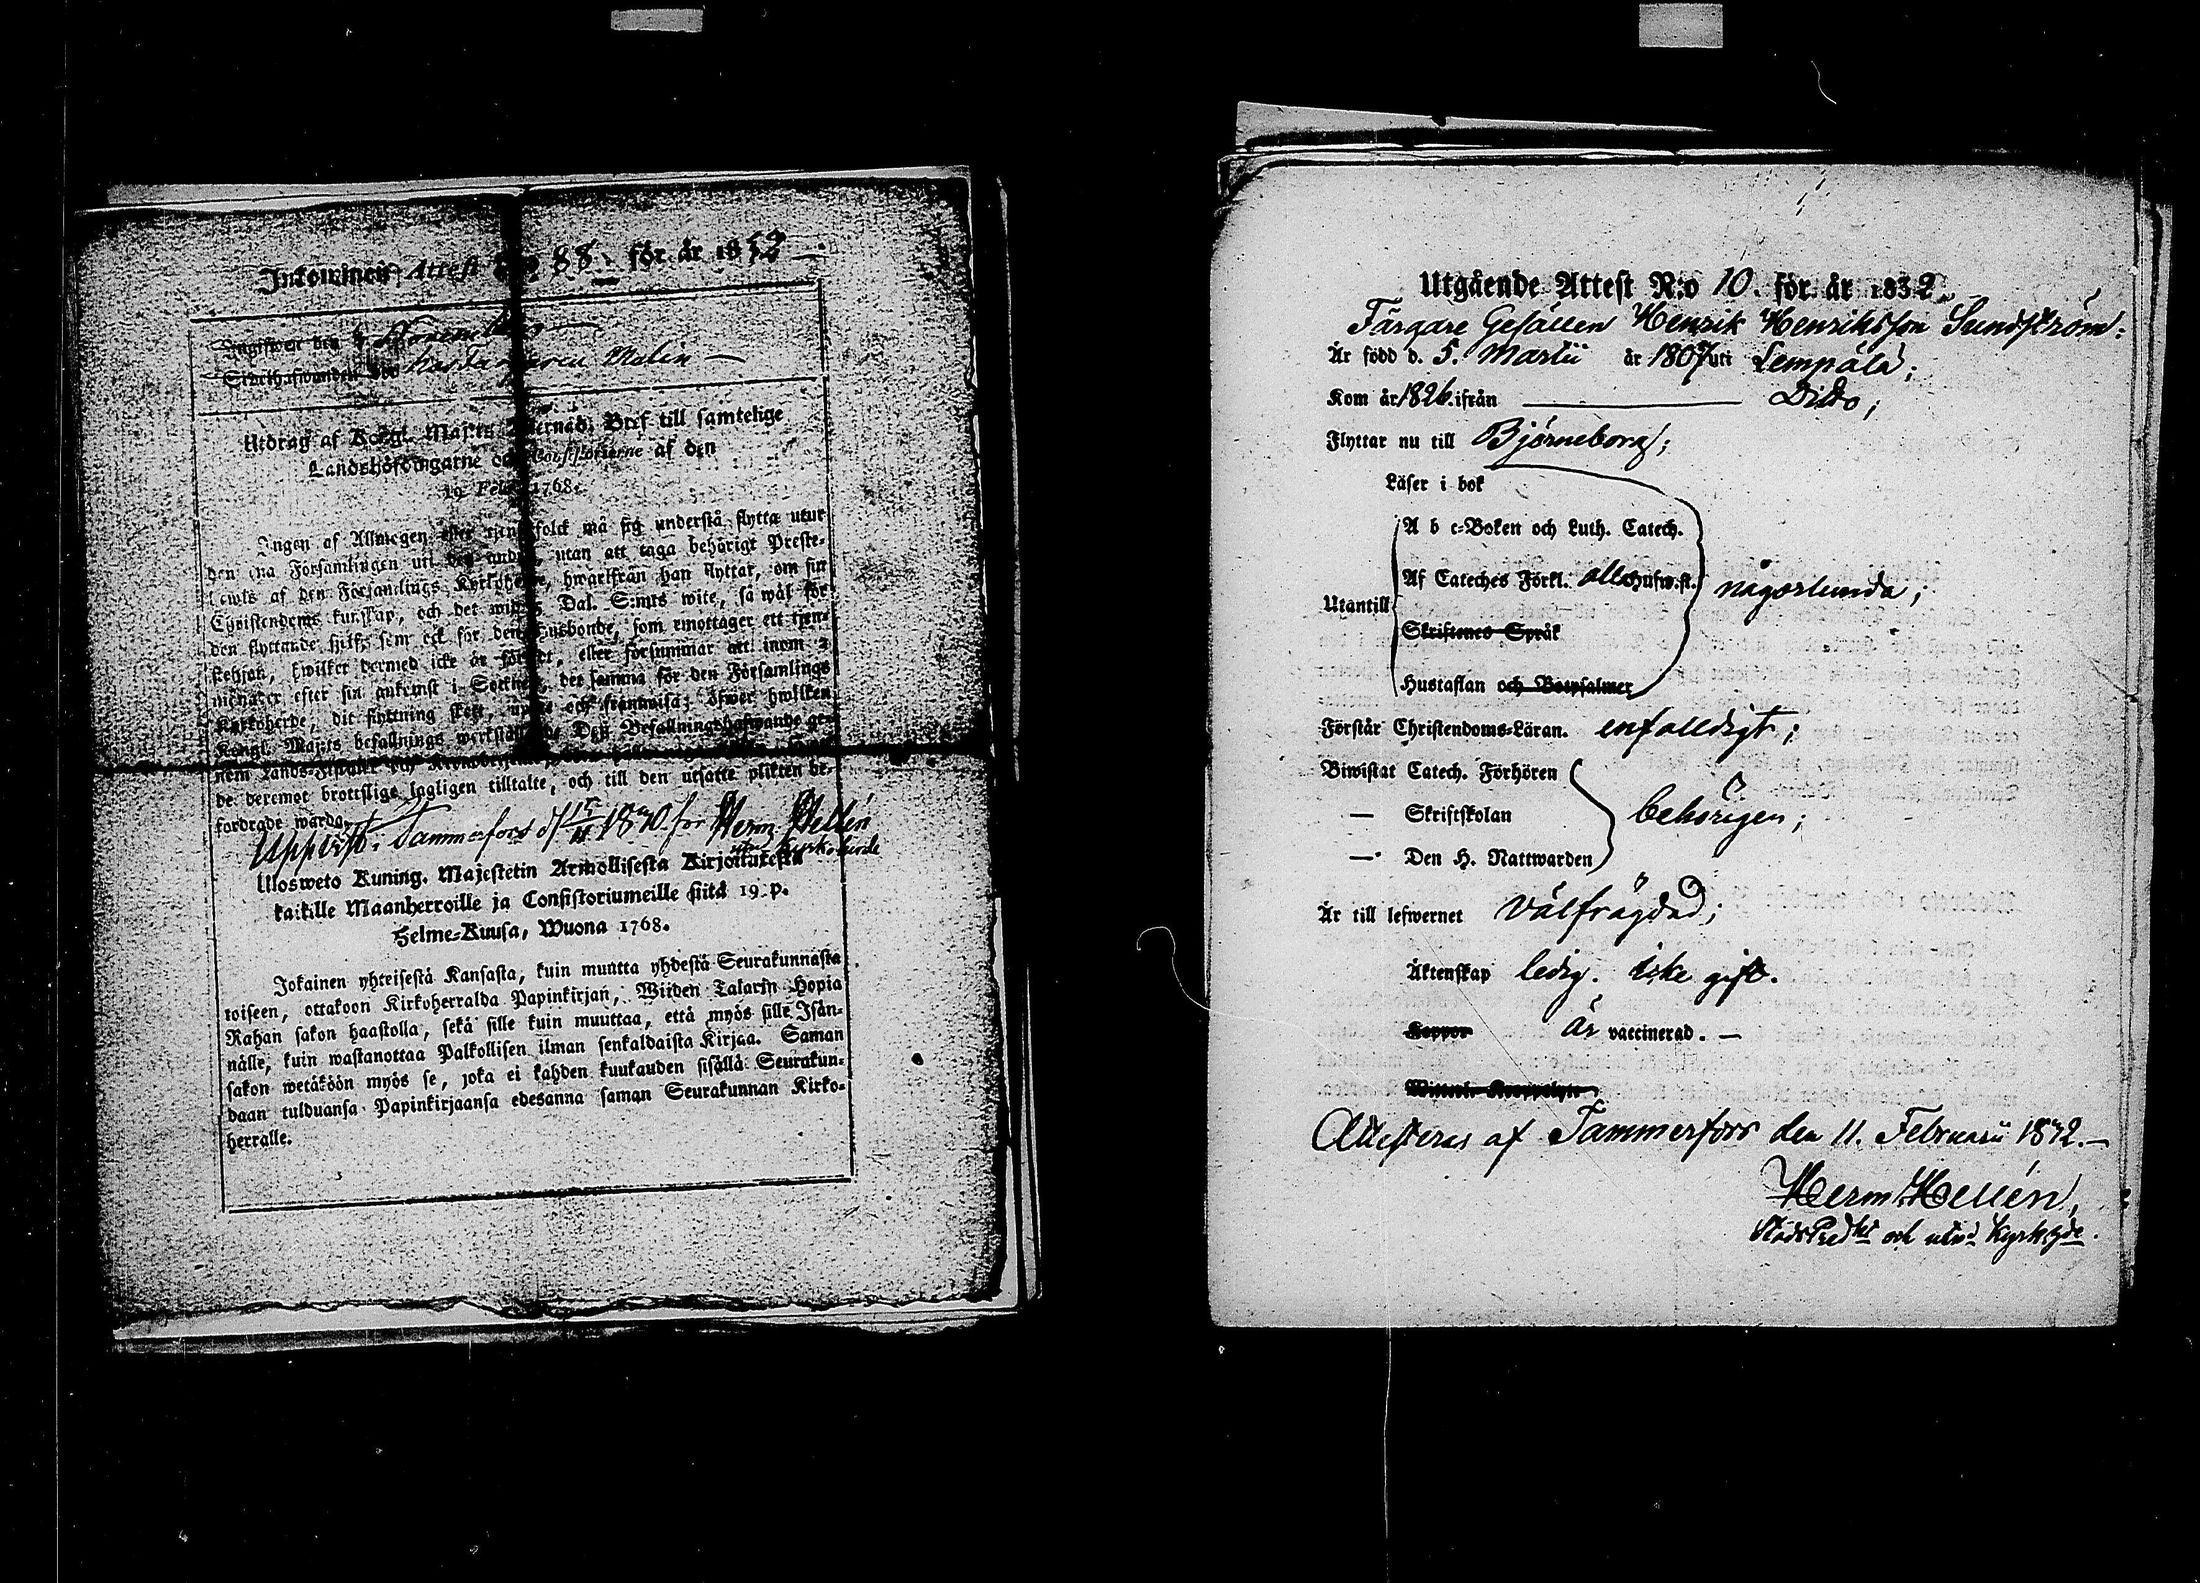 Inkommen Attest 88. för år 18
Ingifwen den
Utdrag af Kongl. Maj:ts Bref till samtelige
Landshöfdingarne och Consistorierne af den
19 Febr. 1768.
Ingen af Allmogen eller tjenstefolck må sig understå flytta utur
den ena Församlingen uti den andra, utan att taga behörigt Preste-
bewis af den Församlings Kyrkoherde, hwarifrån han flyttar, om sin
Christendoms kunskap, och det wid 5 Dal. S:mts wite, så wäl för
den flyttande sjelf, som ock för den Husbonde, som emottager ett tjen-
stehjon, hwilket dermed icke är försedt, eller försummar att inom 2
månader efter sin ankomst i Socknen, det samma för den Församlings
Kyrkoherde, dit flyttning skett, uppte och framwisa; öfwer hwilken
Kongl. Maj:ts befallnings werkställande Den Befallningshafwande ge-
nom Lands-Fiscaler och
de deremot brottslige lagligen tilltalte, och till den utsatte plikten be-
fordrade warda.
Uppvist i Tammerfors d. 1830. för Herm Hellén
Kyrkoherde
Ulosweto Kuning. Majestetin Armollisesta Kirjoituxesta
kaikille Maanherroille ja Consistoriumeille siitä 19. p.
Helme-Kuusa, Wuona 1768.
Jokainen yhteisestä Kansasta, kuin muutta yhdestä Seurakunnasta
toiseen, ottakoon Kirkoherralda Papinkirjan, Wiiden Talarin Hopia
Rahan sakon haastolla, sekä sille kuin muuttaa, että myös sille Isän-
nälle, kuin wastanottaa Palkollisen ilman senkaldaista Kirjaa. Saman
sakon wetäköön myös se, joka ei kahden kuukauden sisällä Seurakun-
daan tulduansa Papinkirjaansa edesanna saman Seurakunnan Kirko-
herralle.
Utgående Attest N:o 10. för år 1832.
Färgare Gesällen Henrik Henriksson Sundström:
Är född d. 5. Martii år 1807 uti Lempälä;
Kom år 1826. ifrån Ditto;
Flyttar nu till Björneborg;
Läser i bok
A b c-Boken och Luth. Catech.
Af Cateches Förkl. alla hufw.st. någorlunda;
Utantill
Skriftenes Språk
Hustaflan och Botpsalmer
Förstår Christendoms-Läran. enfalldigt;
Biwistat Catech. Förhören
— Skriftskolan behörigen;
— Den H. Nattwarden
Är till lefwernet välfrägdad;
Äktenskap ledig. icke gift.
Koppor är vaccinerad. —
Attesteras af Tammerfors den 11. Februarii 1832. —
Herm Hellén,
StadsPred:kt och utnd Kyrkohde.